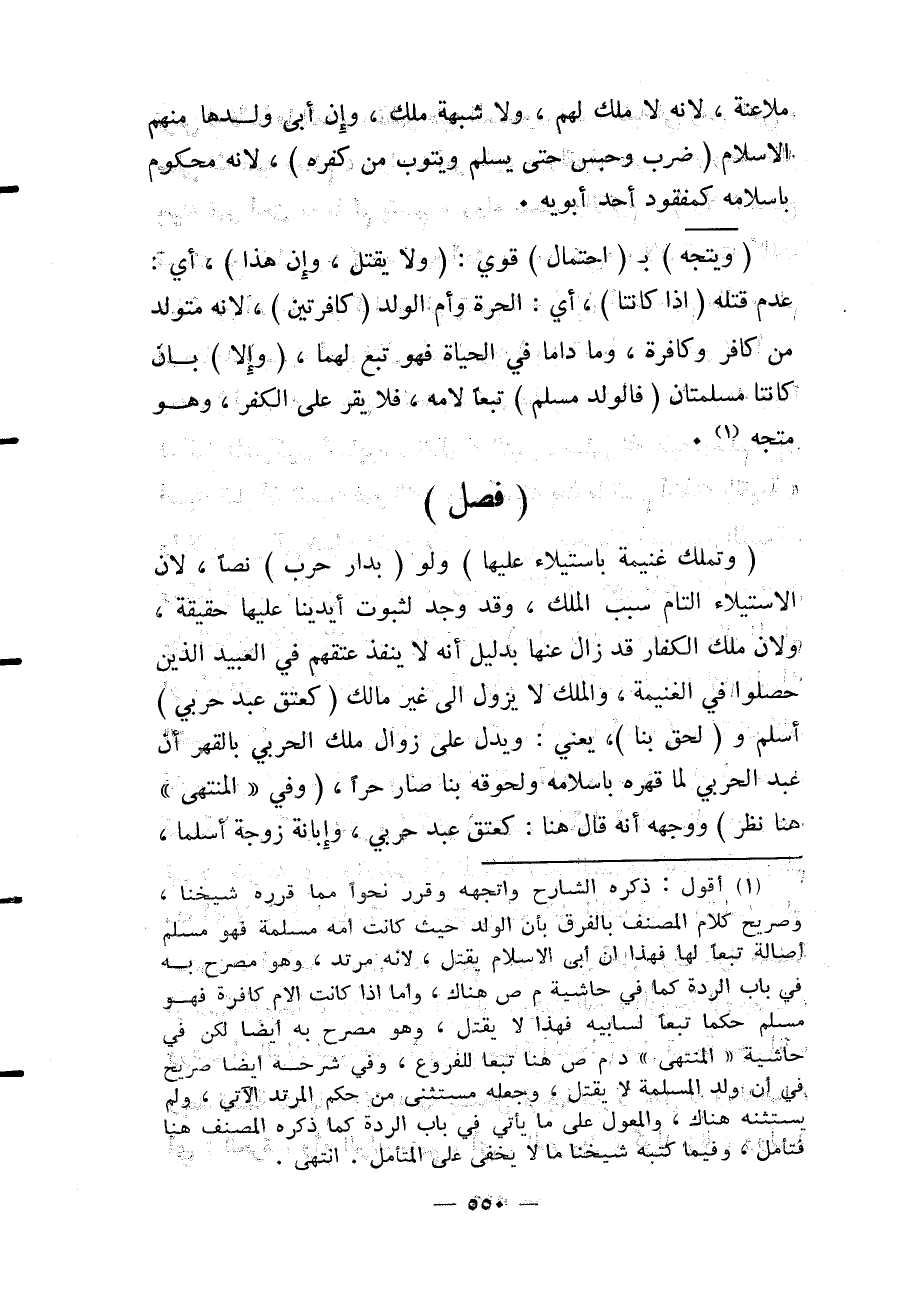 ملاعنة ، لانه لا ملك لهم ، ولا شبهة ملك ، وإن أبى ولـــدها منهم
الاسلام ( ضرب وحبس حتى يسلم ويتوب من كفره ) ، لانه محكوم
باسلامه كمفقود أحد أبويه ٠
( ويتجه ) بـ ( احتمال ) قوي : ( ولا يقتل ، وإن هذا ) ، أي :
عدم قتله ( اذا كانتا ) ، أي : الحرة وأم الولد ( كافرتين ) ، لانه متولد
من كافر وكافرة ، وما داما في الحياة فهو تبع لهما ، ( وإلا ) بـــان
كانتا مسلمتان ( فالولد مسلم ) تبعاً لامه ، فلا يقر على الكفر ، وهـــو
متجه (١) ٠
( فصل )
( وتملك غنيمة باستيلاء عليها ) ولو ( بدار حرب ) نصاً ، لان
الاستيلاء التام سبب الملك ، وقد وجد لثبوت أيدينا عليها حقيقة ،
ولان ملك الكفار قد زال عنها بدليل أنه لا ينفذ عتقهم في العبيد الذين
حصلوا في الغنيمة ، والملك لا يزول الى غير مالك ( كعتق عبد حربي )
أسلم و ( لحق بنا )، يعني : ويدل على زوال ملك الحربي بالقهر أن
عبد الحربي لما قهره باسلامه ولحوقه بنا صار حراً ، ( وفي « المنتهى »
هنا نظر ) ووجهه أنه قال هنا : كعتق عبد حربي ، وإبانة زوجة أسلما ،
(١) أقول : ذكره الشارح واتجهه وقرر نحواً مما قرره شيخنا ،
وصريح كلام المصنف بالفرق بأن الولد حيث كانت امه مسلمة فهو مسلم
أصالة تبعاً لها فهذا ان أبى الاسلام يقتل ، لانه مرتد ، وهو مصرح بـــه
في باب الردة كما في حاشية م ص هناك ، واما اذا كانت الام كافرة فهـــو
مسلم حكما تبعاً لسابيه فهذا لا يقتل ، وهو مصرح به أيضا لكن في
حاشية « المنتهى » د م ص هنا تبعا للفروع ، وفي شرحـــه ايضا صريح
في أن ولد المسلمة لا يقتل ، وجعله مستثنى من حكم المرتد الآتي ، ولم
يستثنه هناك ، والمعول على ما يأتي في باب الردة كما ذكره المصنف هنا
فتأمل ، وفيما كتبه شيخنا ما لا يخفى على المتأمل . انتهى .
— ٥٥٠ —